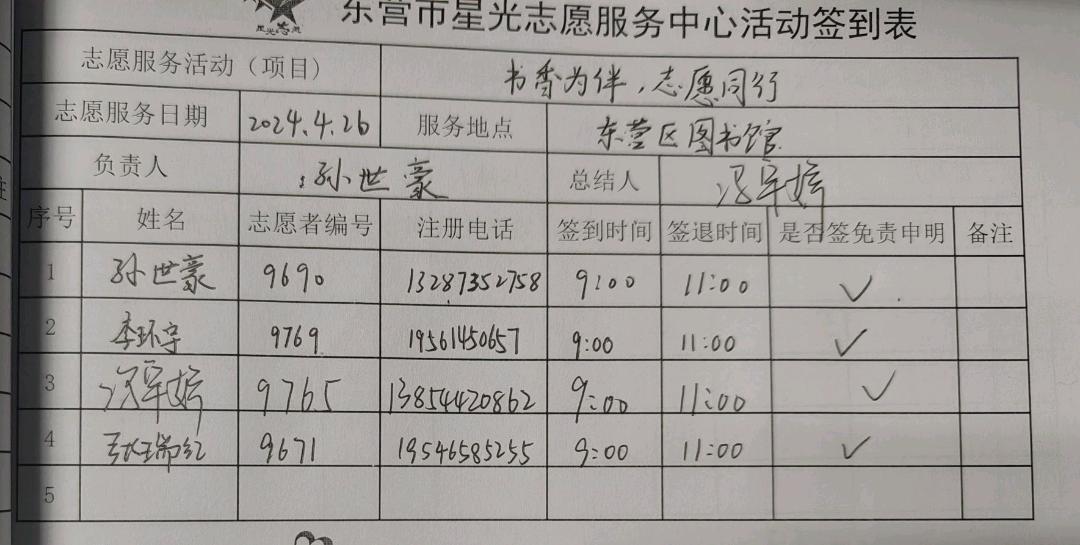 星光志愿
东营市星光志愿服务中心活动签到表
志愿服务活动（项目） 书香为伴，志愿同行
志愿服务日期 2024.4.26 服务地点 东营区图书馆
负责人 孙世豪 总结人
序号 姓名 志愿者编号 注册电话 签到时间 签退时间 是否签免责申明 备注
1 孙世豪 9690 13287352758 9:00 11:00 ✓
2 李环宇 9769 19561450657 9:00 11:00 ✓
3 9765 13854420862 9:00 11:00 ✓
4 9671 19546585255 9:00 11:00 ✓
5